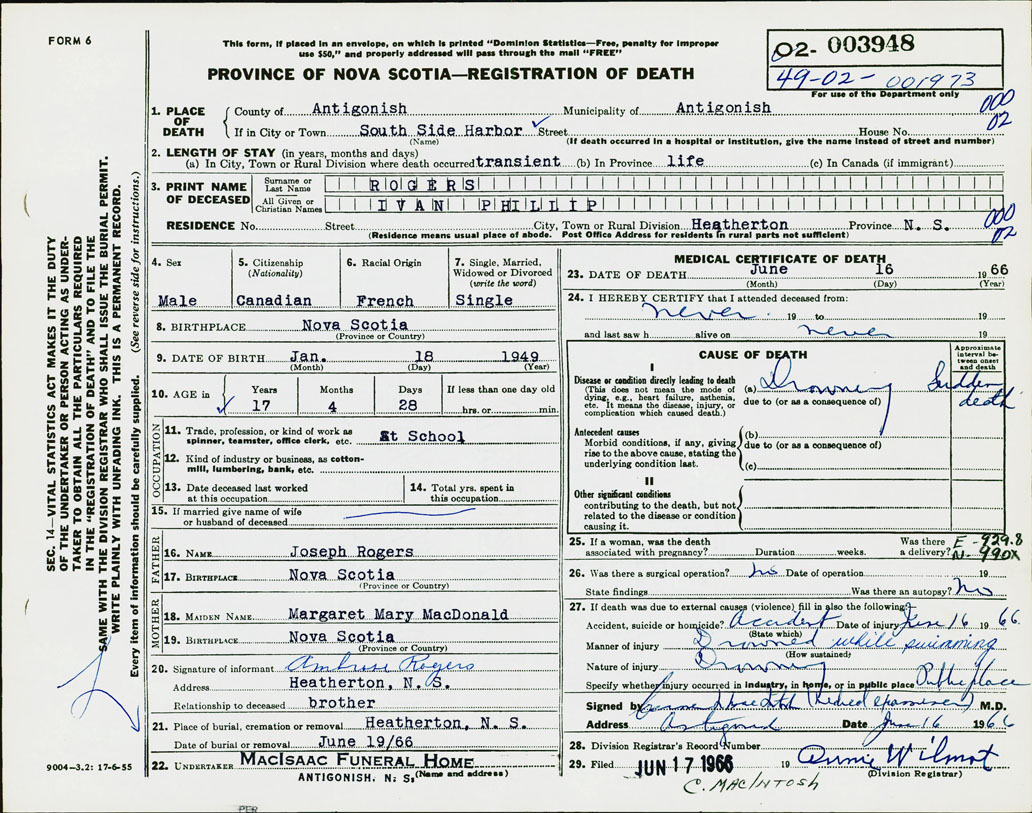 FORM 6
This form, if placed in an envelope, on which is printed "Dominion Statistics—Free, penalty for improper
use $50," and properly addressed will pass through the mail "FREE"
PROVINCE OF NOVA SCOTIA—REGISTRATION OF DEATH
02- 003948
49-02- 001973
For use of the Department only
1. PLACE OF DEATH
County of Antigonish Municipality of Antigonish 000
If in City or Town South Side Harbor Street House No. 02
(Name) (If death occurred in a hospital or institution, give the name instead of street and number)
2. LENGTH OF STAY (in years, months and days)
(a) In City, Town or Rural Division where death occurred transient (b) In Province life (c) In Canada (if immigrant)
3. PRINT NAME OF DECEASED
Surname or Last Name ROGERS
All Given or Christian Names IVAN PHILLIP
RESIDENCE No. Street City, Town or Rural Division Heatherton Province N. S. 000 02
(Residence means usual place of abode. Post Office Address for residents in rural parts not sufficient)
4. Sex
Male
5. Citizenship
(Nationality)
Canadian
6. Racial Origin
French
7. Single, Married,
Widowed or Divorced
(write the word)
Single
8. BIRTHPLACE Nova Scotia
(Province or Country)
9. DATE OF BIRTH Jan. 18 1949
(Month) (Day) (Year)
10. AGE in Years Months Days If less than one day old
17 4 28 hrs. or min.
OCCUPATION
11. Trade, profession, or kind of work as
spinner, teamster, office clerk, etc. At School
12. Kind of industry or business, as cotton-
mill, lumbering, bank, etc.
13. Date deceased last worked
at this occupation
14. Total yrs. spent in
this occupation
15. If married give name of wife
or husband of deceased
FATHER
16. NAME Joseph Rogers
17. BIRTHPLACE Nova Scotia
(Province or Country)
MOTHER
18. MAIDEN NAME Margaret Mary MacDonald
19. BIRTHPLACE Nova Scotia
(Province or Country)
20. Signature of informant Ambrose Rogers
Address Heatherton, N. S.
Relationship to deceased brother
21. Place of burial, cremation or removal Heatherton, N. S.
Date of burial or removal June 19/66
22. UNDERTAKER MACISAAC FUNERAL HOME
ANTIGONISH, N. S. (Name and address)
MEDICAL CERTIFICATE OF DEATH
23. DATE OF DEATH June 16 1966
(Month) (Day) (Year)
24. I HEREBY CERTIFY that I attended deceased from:
never 19 to 19
and last saw h alive on never 19
CAUSE OF DEATH
Approximate interval between onset and death
I
Disease or condition directly leading to death
(This does not mean the mode of
dying, e.g., heart failure, asthenia,
etc. It means the disease, injury, or
complication which caused death.)
(a) Drowning Sudden death
due to (or as a consequence of)
Antecedent causes
Morbid conditions, if any, giving
rise to the above cause, stating the
underlying condition last.
(b)
due to (or as a consequence of)
(c)
II
Other significant conditions
contributing to the death, but not
related to the disease or condition
causing it.
25. If a woman, was the death Was there E-929.8
associated with pregnancy? Duration weeks. a delivery? N-990X
26. Was there a surgical operation? No Date of operation 19
State findings Was there an autopsy? No
27. If death was due to external causes (violence) fill in also the following:
Accident, suicide or homicide? Accident Date of injury June 16 1966.
(State which)
Manner of injury Drowned while swimming
(How sustained)
Nature of injury Drowning
Specify whether injury occurred in industry, in home, or in public place Public place
Signed by (Medical Examiner) M.D.
Address Antigonish Date June 16 1966
28. Division Registrar's Record Number
29. Filed JUN 17 1966 19 Annie Wilmot
(Division Registrar)
C. MACINTOSH
SEC. 14—VITAL STATISTICS ACT MAKES IT THE DUTY
OF THE UNDERTAKER OR PERSON ACTING AS UNDER-
TAKER TO OBTAIN ALL THE PARTICULARS REQUIRED
IN THE "REGISTRATION OF DEATH" AND TO FILE THE
SAME WITH THE DIVISION REGISTRAR WHO SHALL ISSUE THE BURIAL PERMIT.
WRITE PLAINLY WITH UNFADING INK. THIS IS A PERMANENT RECORD.
Every item of information should be carefully supplied. (See reverse side for instructions.)
9004-3.2: 17-6-55
PER